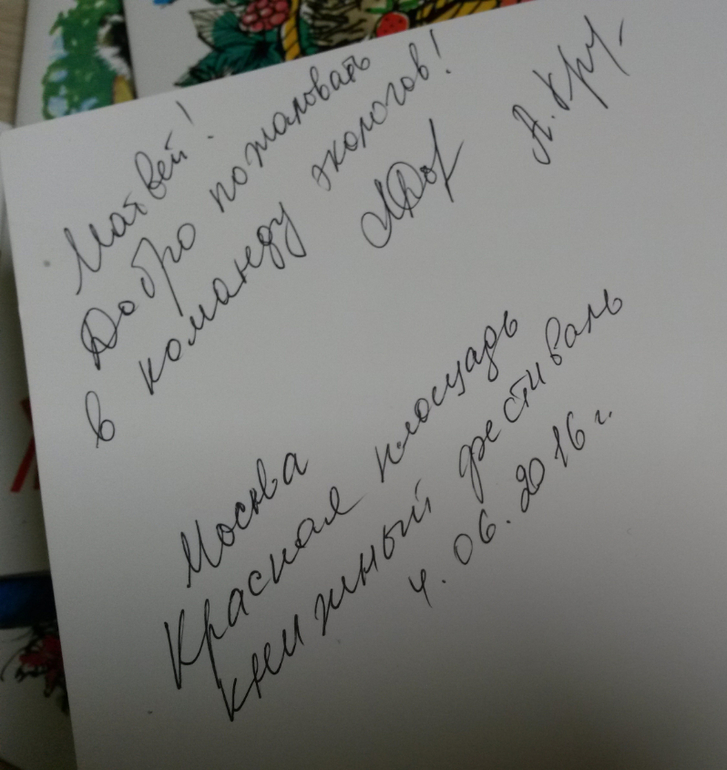 Матвей!
Добро пожаловать
в команду экологов!
А. Кру.
Москва
Красная площадь
книжный фестиваль
4.06.2016 г.